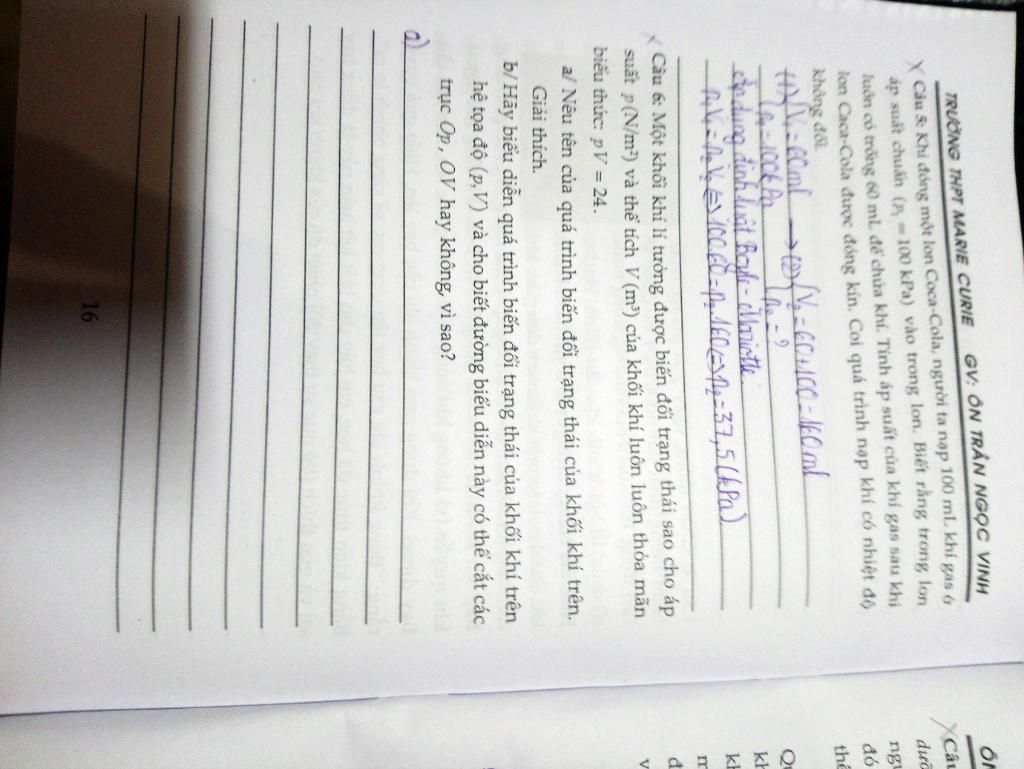 TRƯỜNG THPT MARIE CURIE GV: ÔN TRẦN NGỌC VINH
X Câu 5: Khi đóng một lon Coca-Cola, người ta nạp 100 mL khí gas ở
áp suất chuẩn (p₁ = 100 kPa) vào trong lon. Biết rằng trong lon
luôn có trống 60 mL để chứa khí. Tính áp suất của khí gas sau khi
lon Caca-Cola được đóng kín. Coi quá trình nạp khí có nhiệt độ
không đổi.
(1) { V₁ = 60ml → (2) { V₂ = 60+100 = 160ml
p₁ = 100kPa p₂ = ?
áp dụng định luật Boyle - Mariotte
p₁V₁ = p₂V₂ ⇔ 100.60 = p₂.160 ⇔ p₂ = 37,5 (kPa)
X Câu 6: Một khối khí lí tưởng được biến đổi trạng thái sao cho áp
suất p (N/m²) và thể tích V (m³) của khối khí luôn luôn thỏa mãn
biểu thức: pV = 24.
a/ Nêu tên của quá trình biến đổi trạng thái của khối khí trên.
Giải thích.
b/ Hãy biểu diễn quá trình biến đổi trạng thái của khối khí trên
hệ tọa độ (p,V) và cho biết đường biểu diễn này có thể cắt các
trục Op, OV hay không, vì sao?
a)
16
X Câu
dướ
đó
thể